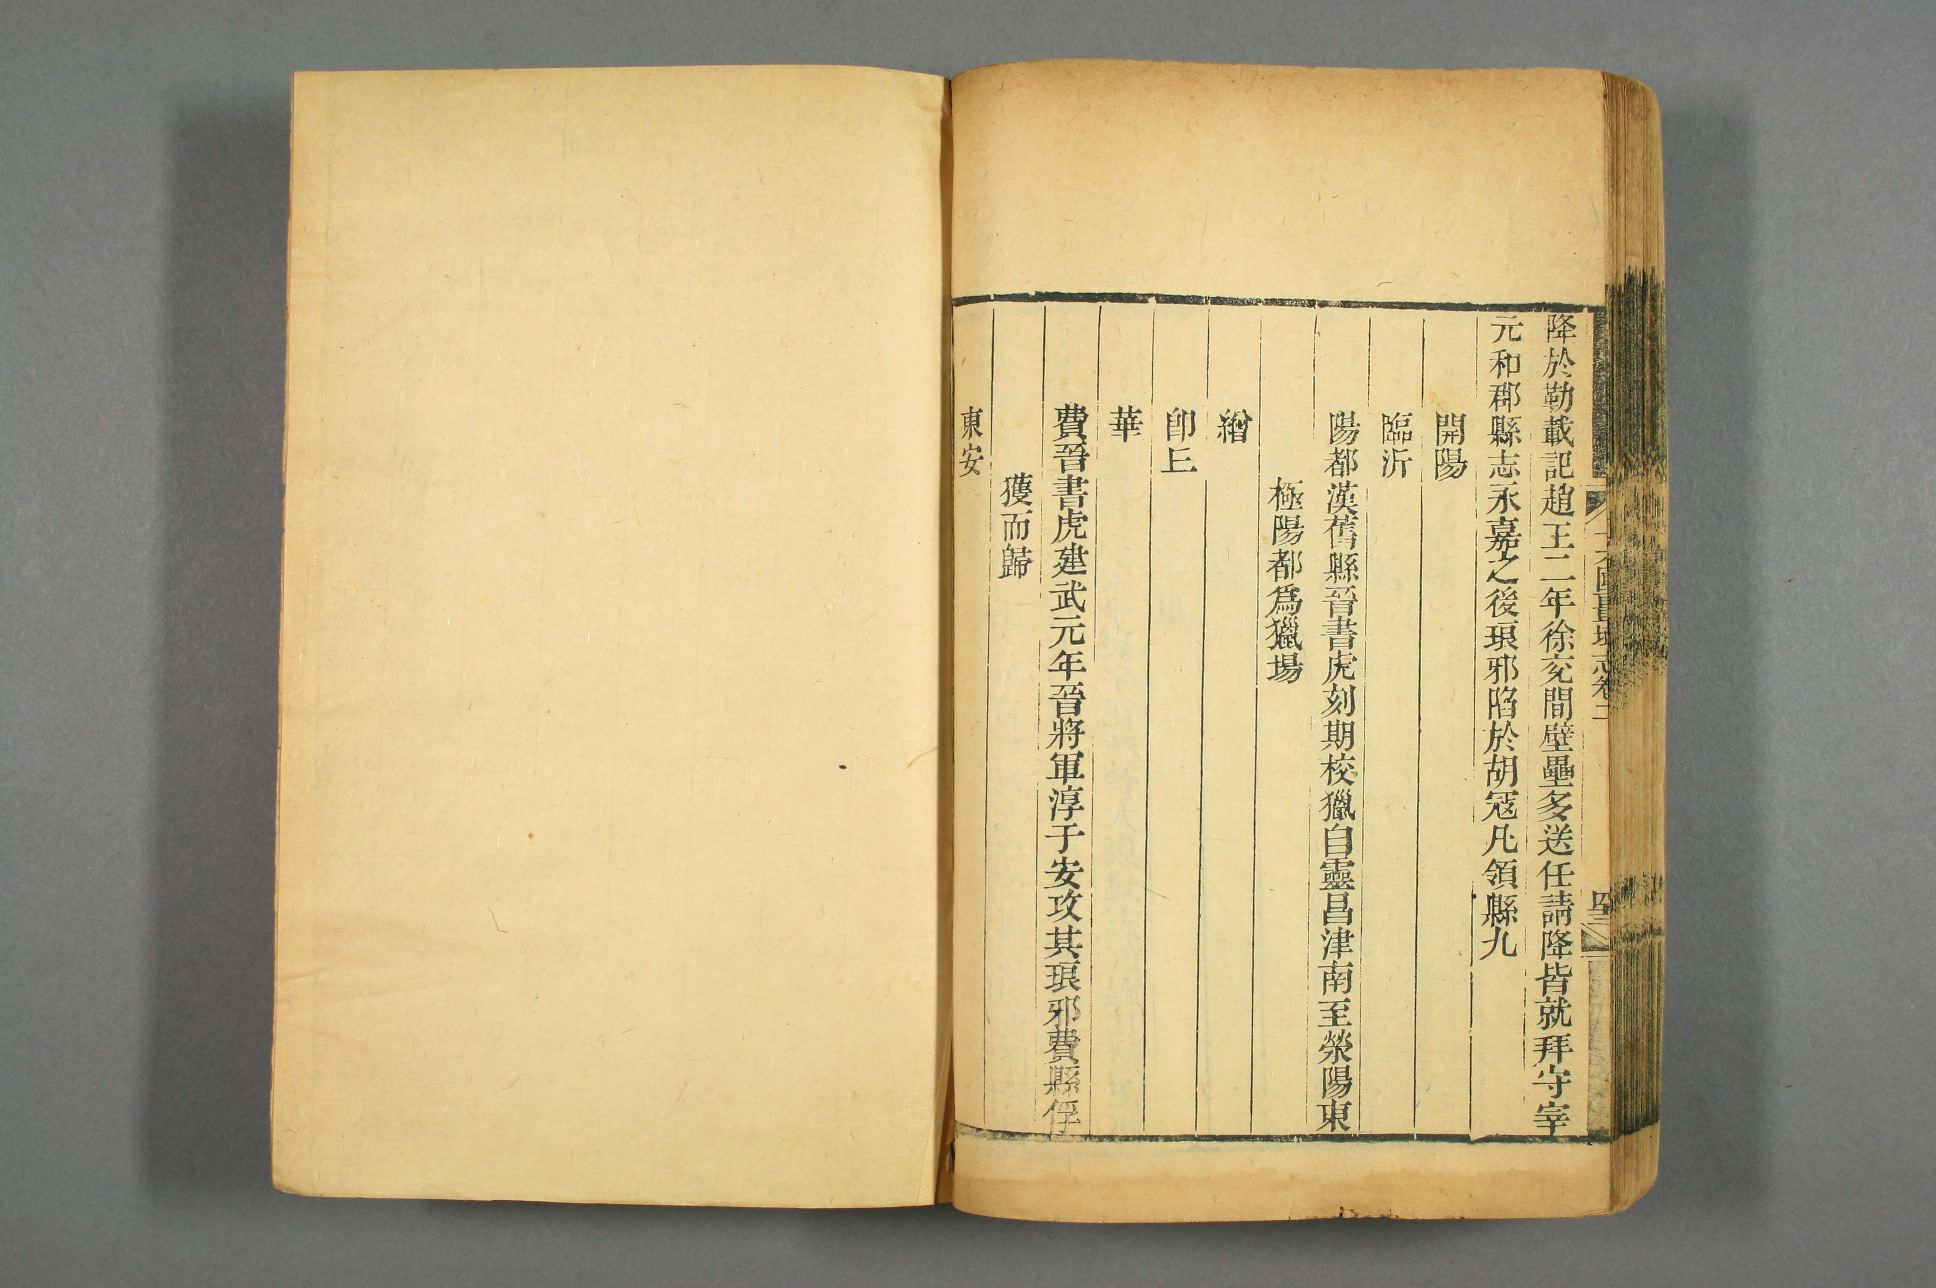 降於勒載記趙王二年徐兗間壁壘多送任請降皆就拜守宰
元和郡縣志永嘉之後琅邪陷於胡寇凡領縣九
開陽
臨沂
陽都漢舊縣晉書虎刻期校獵自靈昌津南至滎陽東
極陽都爲獵場
繒
卽丘
華
費晉書虎建武元年晉將軍淳于安攻其琅邪費縣俘
獲而歸
東安
十六國疆域志卷二